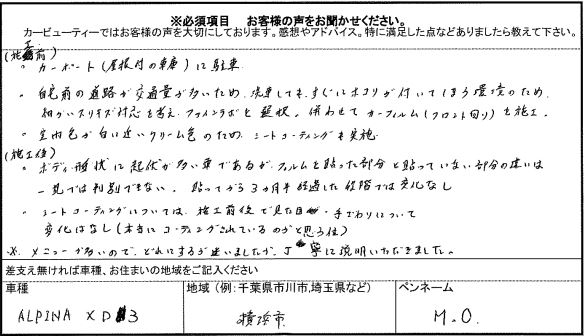 ※必須項目　お客様の声をお聞かせください。
カービューティーではお客様の声を大切にしております。感想やアドバイス。特に満足した点などありましたら教えて下さい。
(施工前)
・カーポート(屋根付の車庫)に駐車
・自宅前の道路が交通量が多いため、洗車しても、すぐにホコリが付いてしまう環境のため、
細かいスリキズ対応を考え、ファインラボを選択。併わせてカーフィルム(フロント回り)を施工。
・室内色が白に近いクリーム色のため、シートコーティングも実施
(施工後)
・ボディ形状に起伏が多い車であるが、フィルムを貼った部分と貼っていない部分の違いは
一見では判別できない。貼ってから3ヵ月半経過した段階では変化なし
・シートコーティングについては、施工前後で見た目・手ざわりについて
変化はなし(本当にコーティングされているのかと思う位)
※メニューが多いので、どれにするか迷いましたが、丁寧に説明いただきました。
差支え無ければ車種、お住まいの地域をご記入ください
車種
地域（例:千葉県市川市,埼玉県など）
ペンネーム
ALPINA XD3
横浜市
M.O.